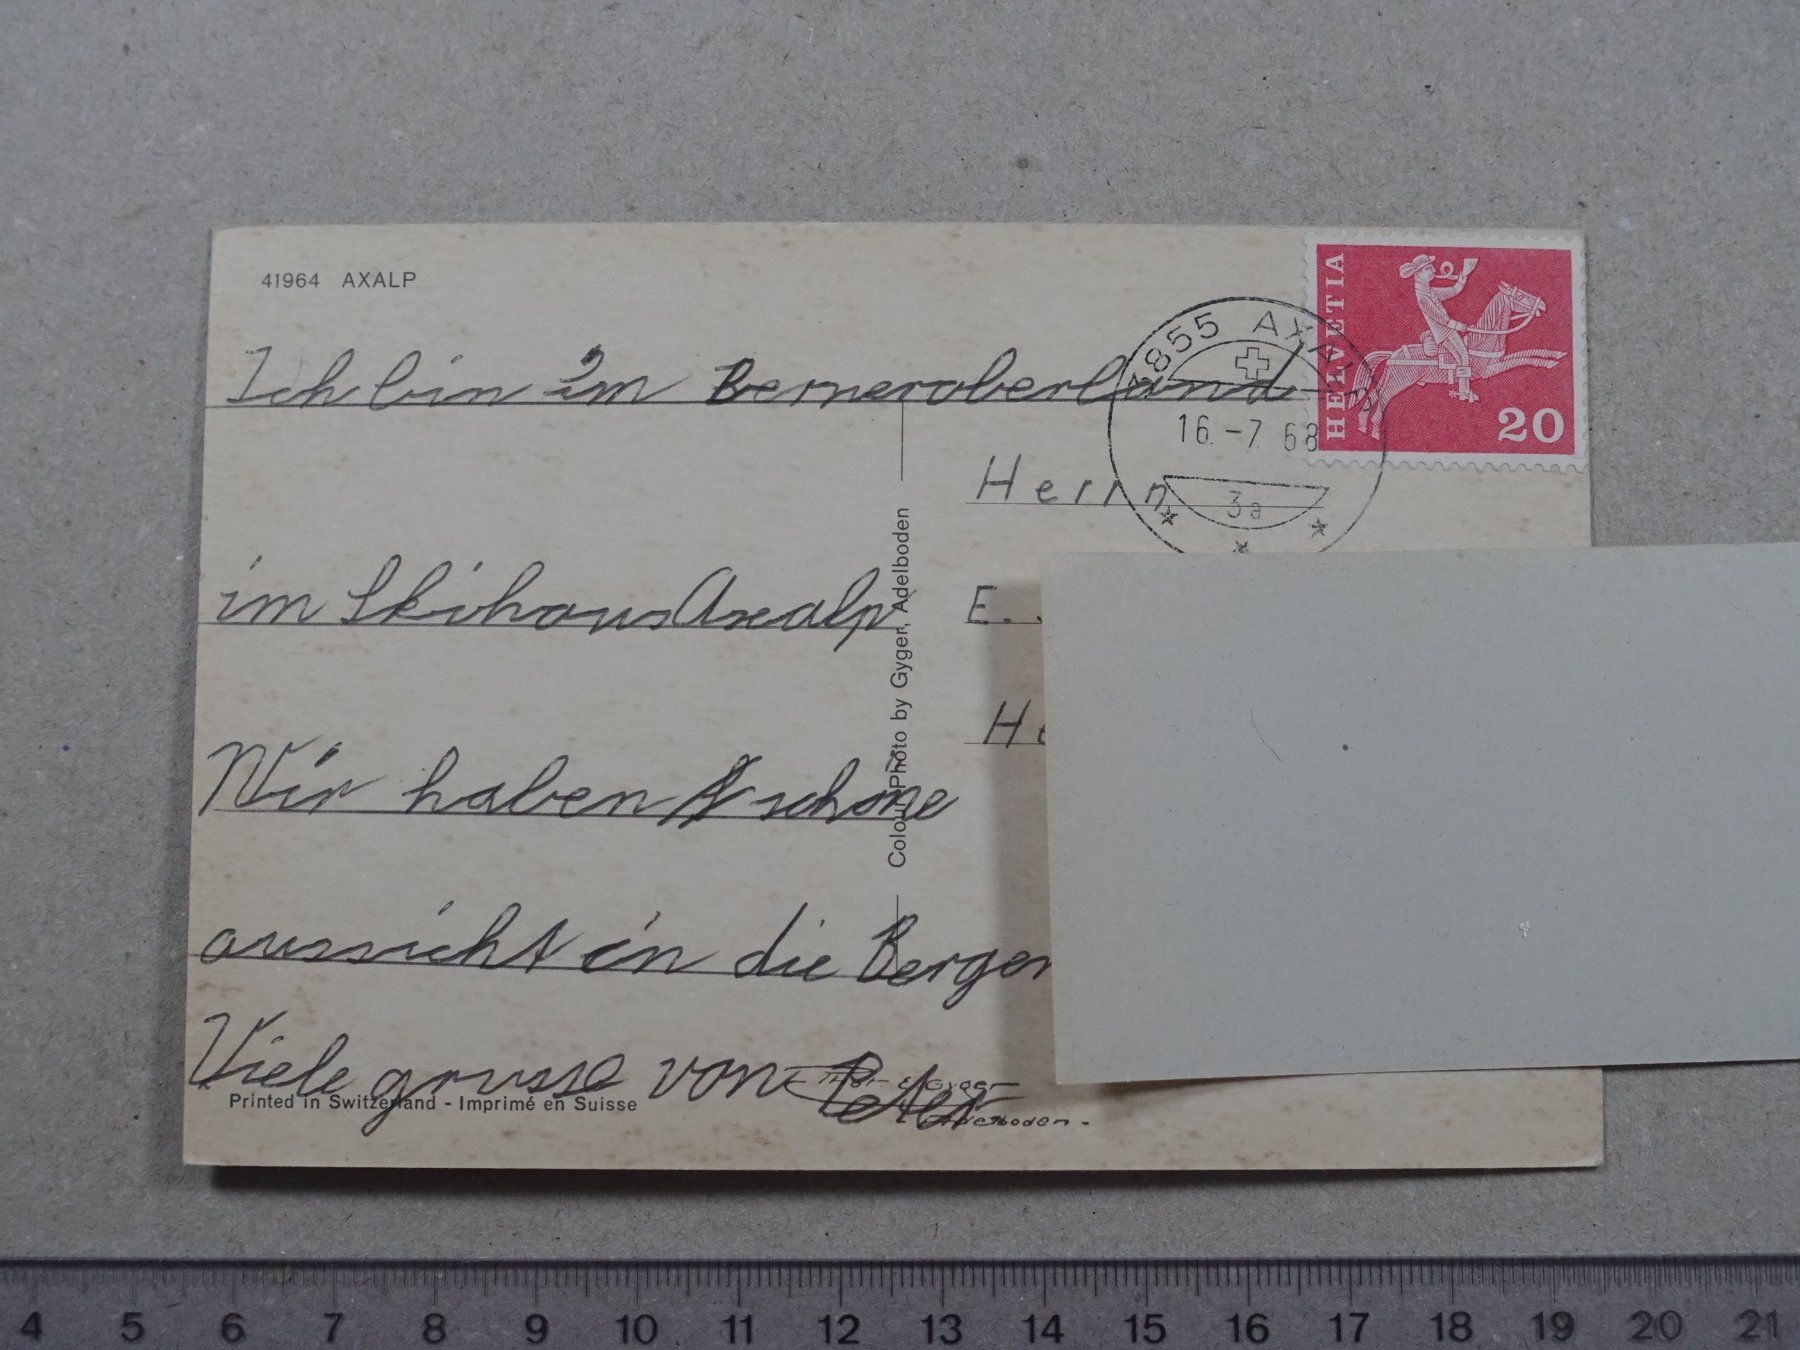 41964 AXALP
HELVETIA
20
4855 AXALP
16.-7.68
3a
Ich bin im Berneroberland
im Skihaus Axalp
Wir haben schöne
aussicht in die Bergen
Viele grusse von Peter
Herrn
E.
Colour Photo by Gyger, Adelboden
Printed in Switzerland - Imprimé en Suisse
Gyger
Adelboden.
4 5 6 7 8 9 10 11 12 13 14 15 16 17 18 19 20 21